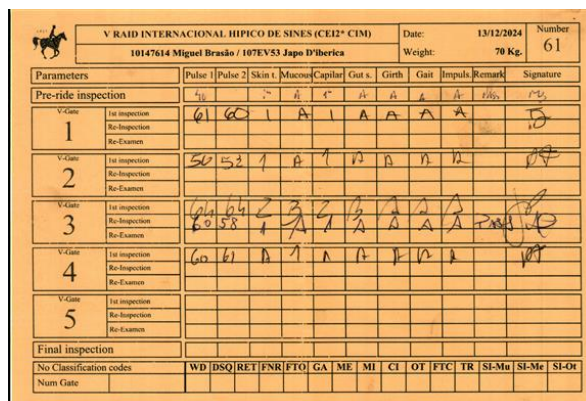 V RAID INTERNACIONAL HIPICO DE SINES (CEI2* CIM) Date: 13/12/2024 Number
10147614 Miguel Brasão / 107EV53 Japo D'iberica Weight: 70 Kg. 61
Parameters Pulse 1 Pulse 2 Skin t. Mucous Capilar Gut s. Girth Gait Impuls. Remark Signature
Pre-ride inspection A A A A
V-Gate 1 1st inspection 61 60 1 A 1 A A A A
Re-Inspection
Re-Examen
V-Gate 2 1st inspection 56 52 1 A 1 A A A A
Re-Inspection
Re-Examen
V-Gate 3 1st inspection 64 64 2 3 2
Re-Inspection 60 58 1 A 1 A A A A
Re-Examen
V-Gate 4 1st inspection 60 61 A 1 A A A A A
Re-Inspection
Re-Examen
V-Gate 5 1st inspection
Re-Inspection
Re-Examen
Final inspection
No Classification codes WD DSQ RET FNR FTO GA ME MI CI OT FTC TR SI-Mu SI-Me SI-Ot
Num Gate